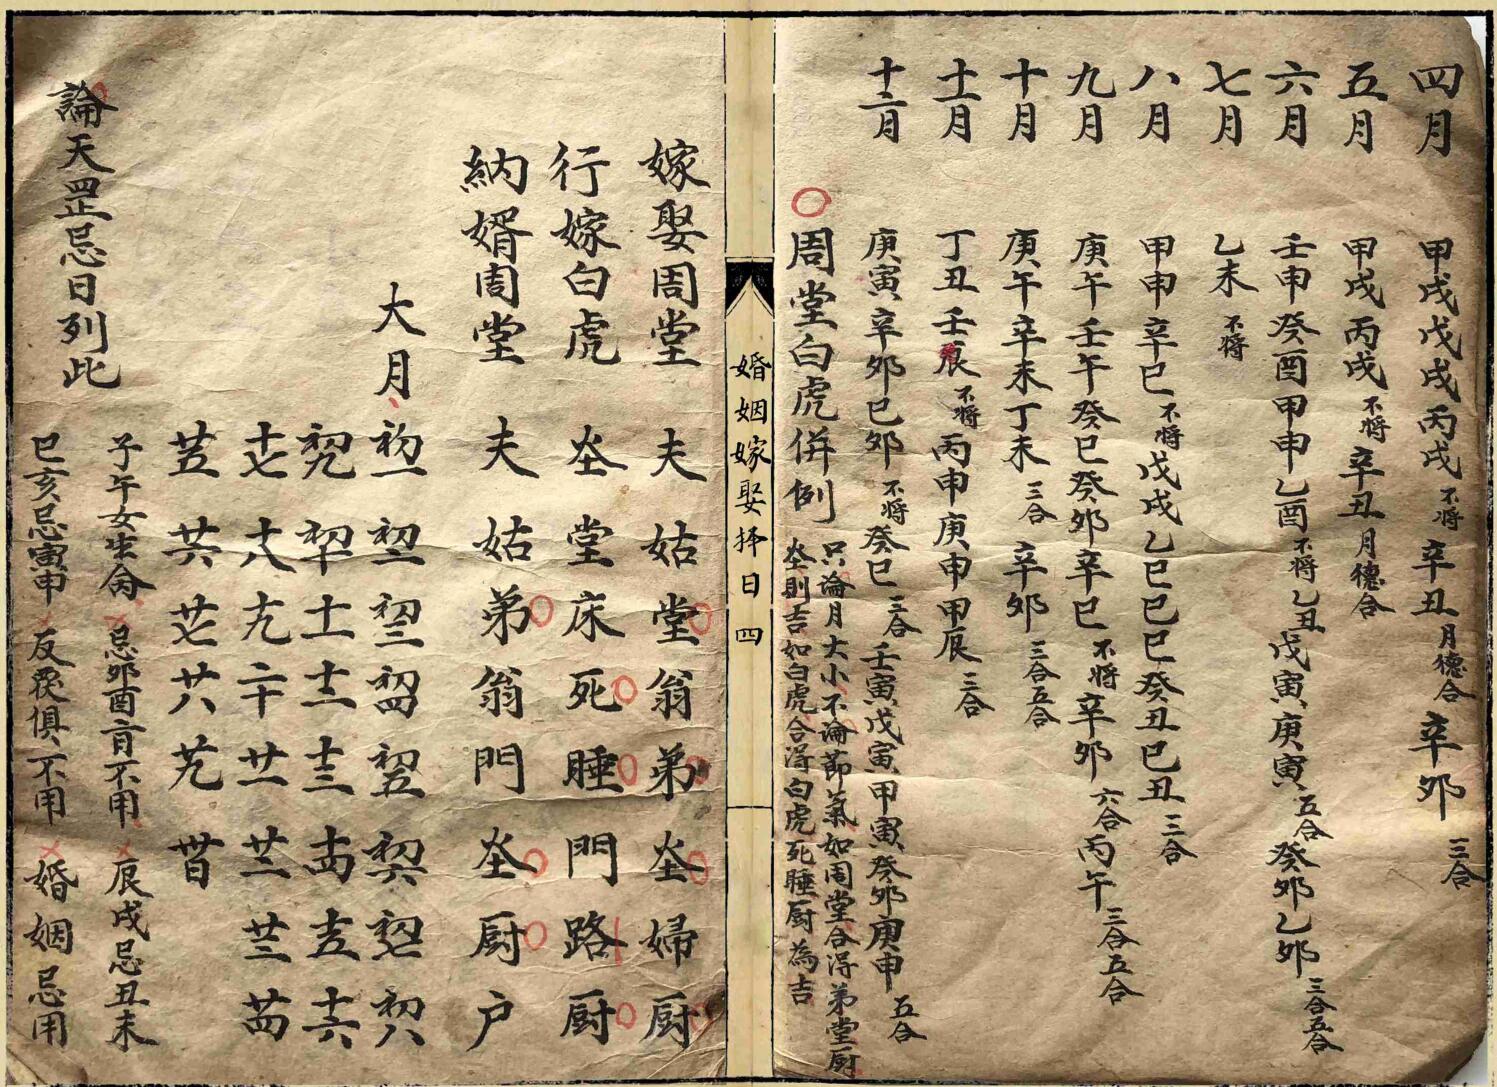 四月 甲戌戊戌丙戌不将辛丑月德合辛卯三合
五月 甲戌丙戌不将辛丑月德合
六月 壬申癸酉甲申乙酉不将乙丑戊寅庚寅五合癸卯乙卯三合五合
七月 乙未不将
八月 甲申辛巳不将戊戌乙巳己巳癸丑巳丑三合
九月 庚午壬午癸巳癸卯辛巳不将辛卯六合丙午三合五合
十月 庚午辛未丁未三合辛卯三合五合
十一月 丁丑壬辰不将丙申庚申甲辰三合
十二月 庚寅辛卯巳卯不将癸巳三合壬寅戊寅甲寅癸卯庚申五合
周堂白虎併例 只論月大小不論節氣如周堂合得弟堂厨
灶則吉如白虎合得白虎死睡厨為吉
婚姻嫁娶择日 四
嫁娶周堂 夫姑堂翁弟灶婦厨
行嫁白虎 灶堂床死睡門路厨
納婿周堂 夫姑弟翁門灶厨户
大月 初一初二初三初四初五初六初七初八
初九初十十一十二十三十四十五十六
十七十八十九二十廿一廿二廿三廿四
廿五廿六廿七廿八廿九卅日
論天罡忌日列此
子午女生命忌卯酉盲不用辰戌忌丑未
巳亥忌寅申反覆俱不用婚姻忌用